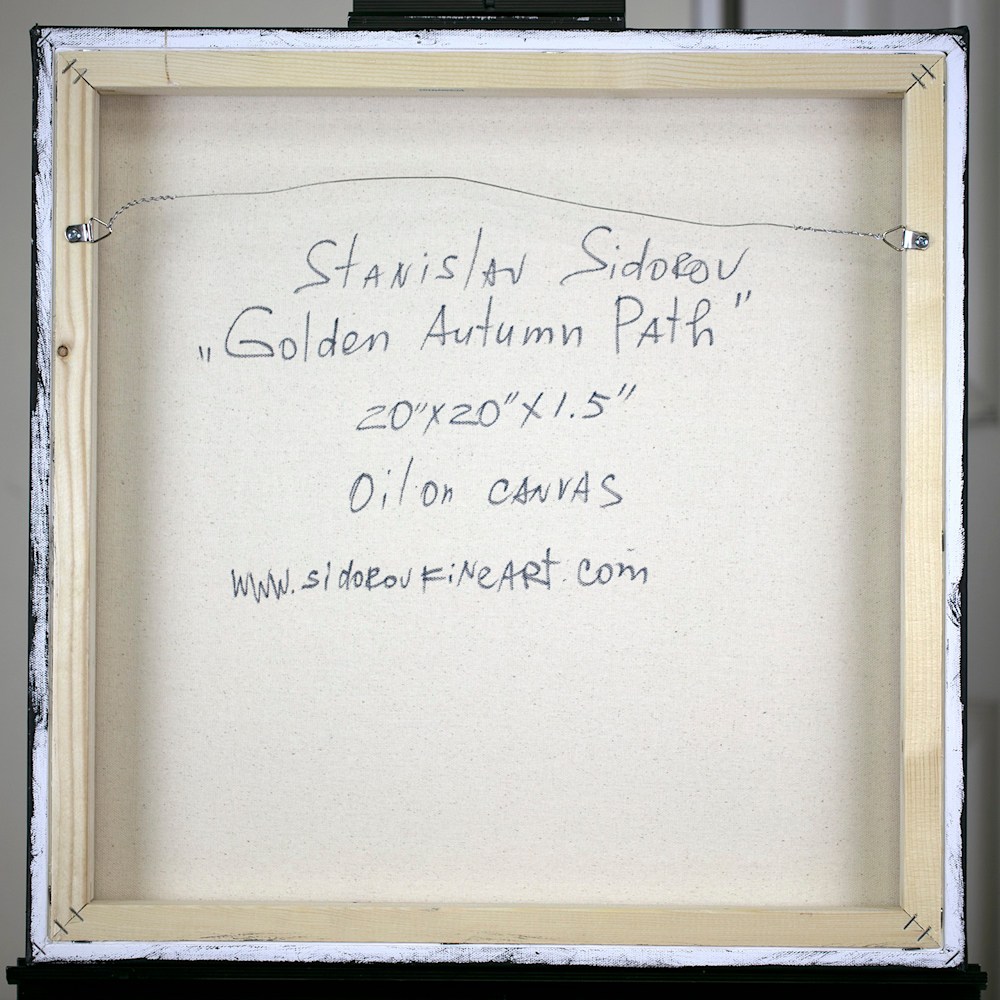 Stanislav Sidorov
„Golden Autumn Path"
20"x20"x1.5"
Oil on canvas
www.sidorovfineart.com